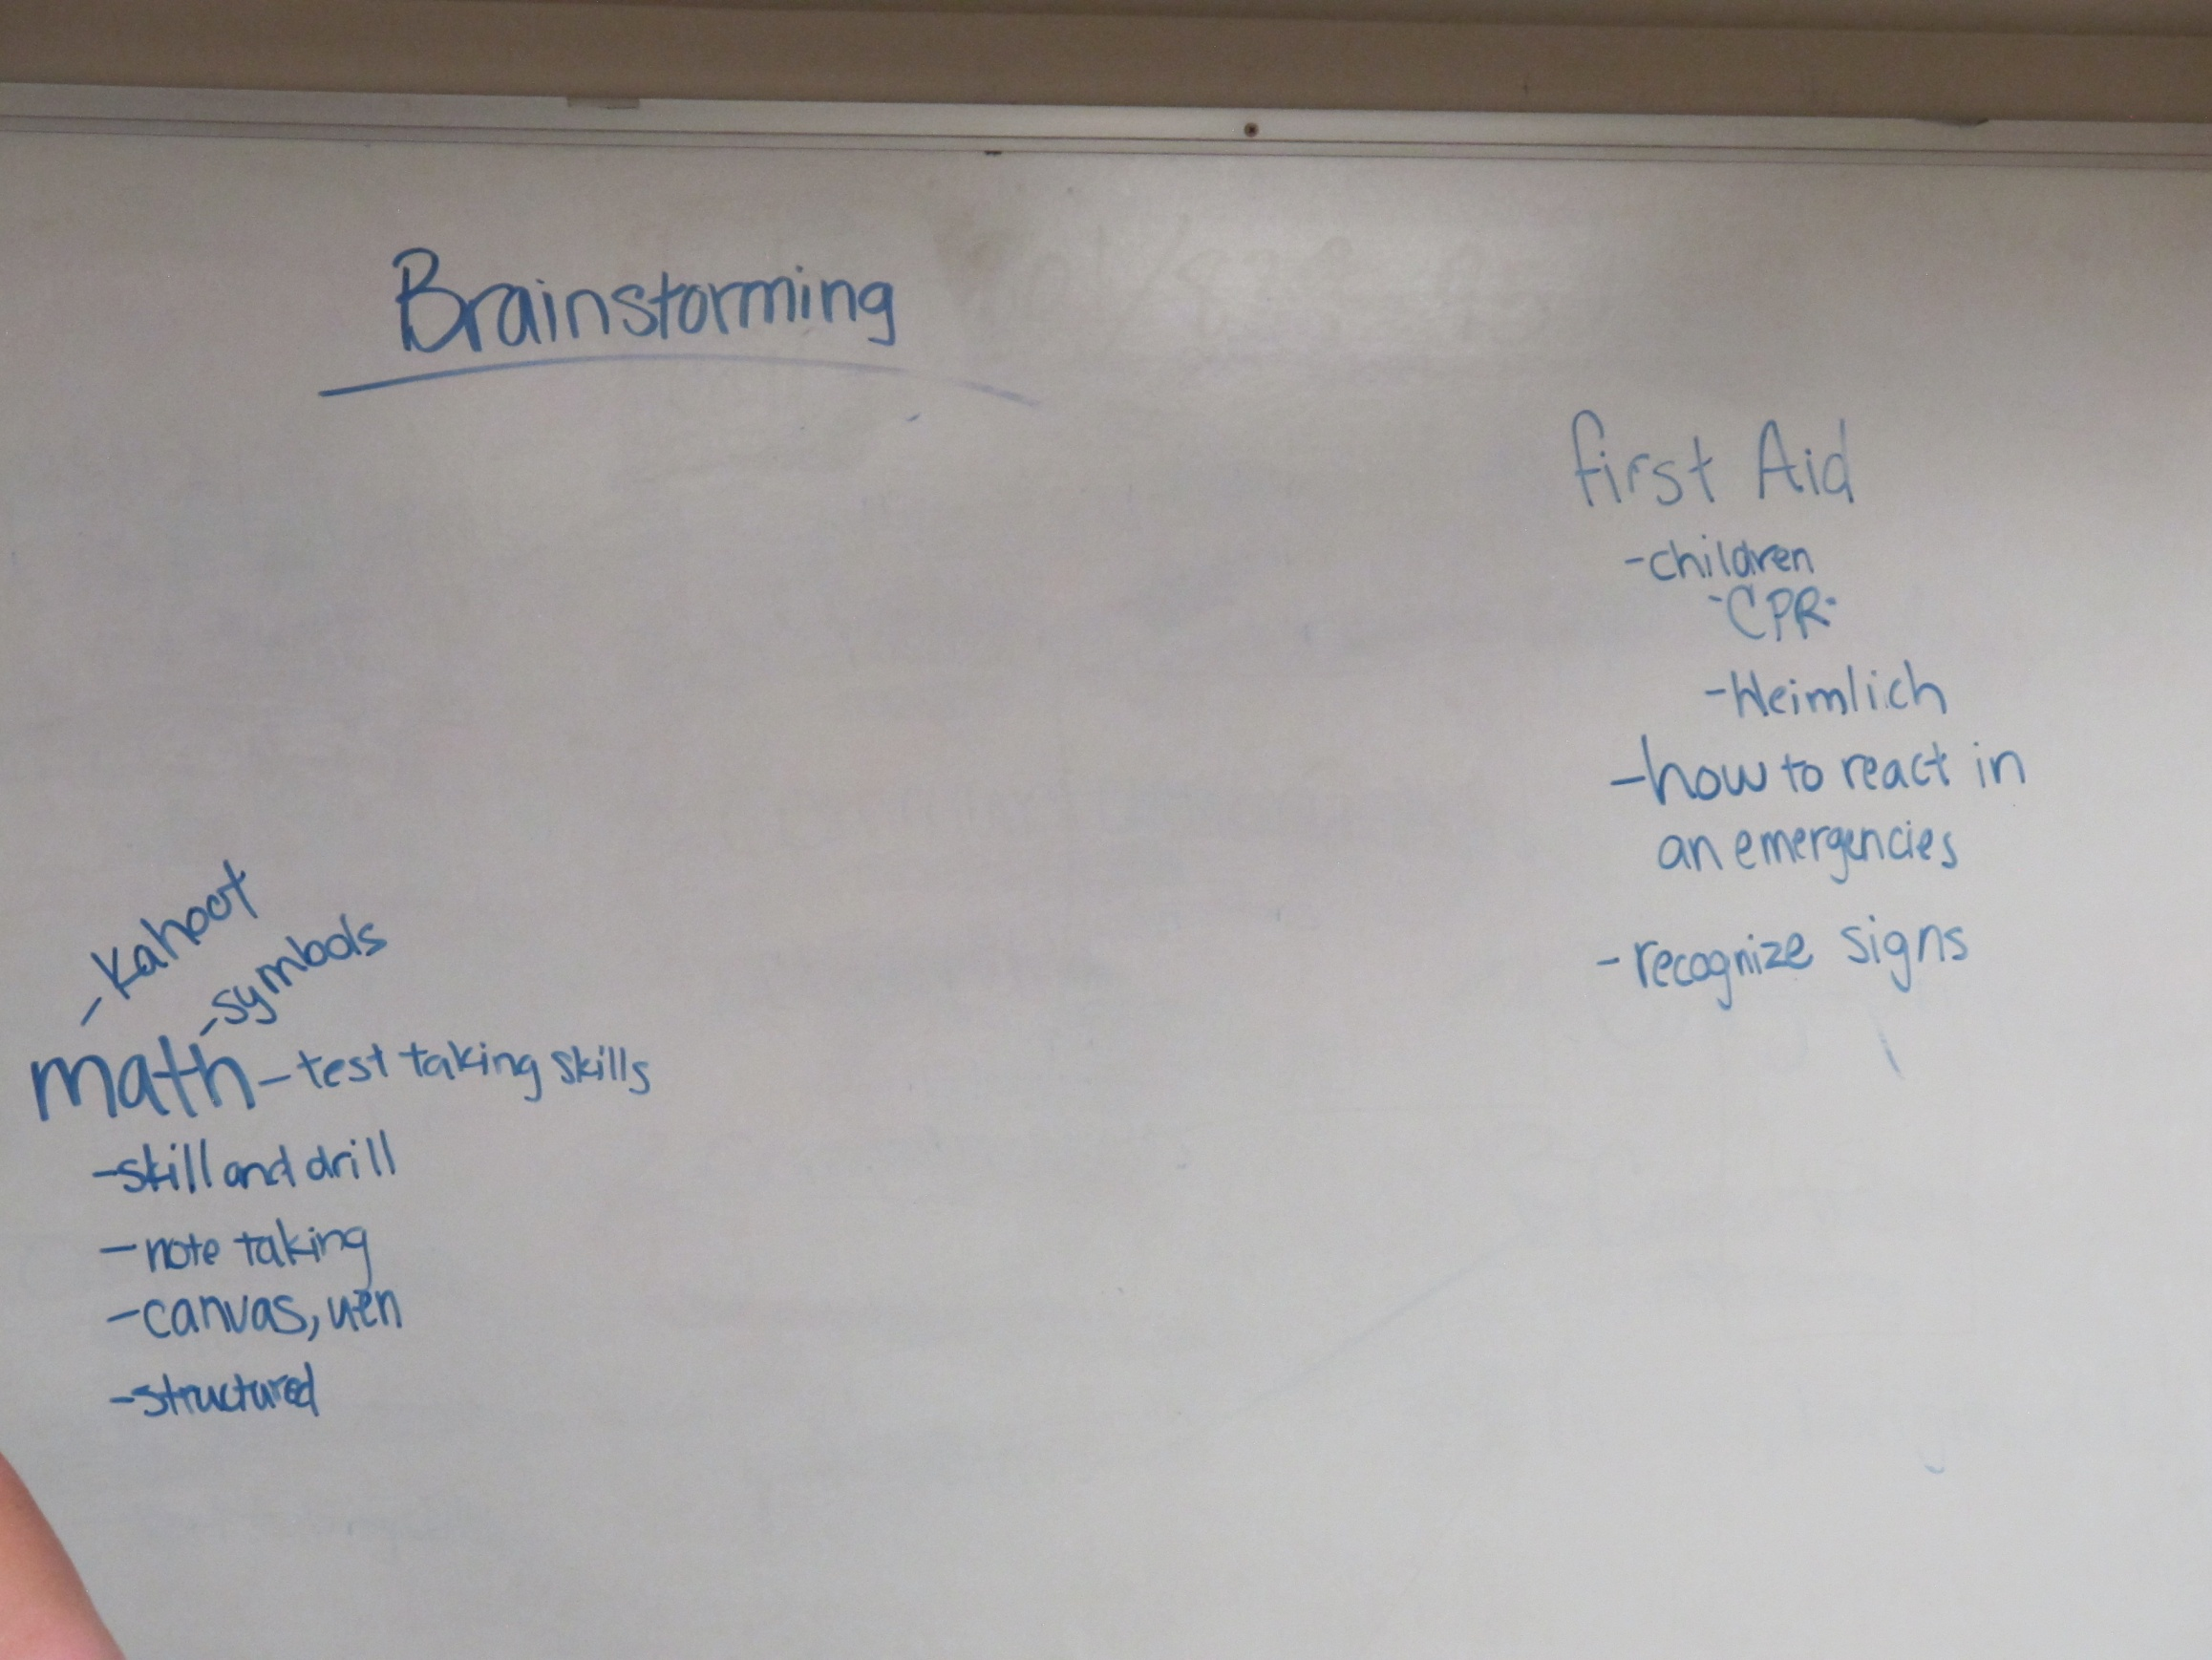 Brainstorming
first Aid
-children
-CPR-
-Heimlich
-how to react in
an emergencies
-recognize signs
-Kahoot
-symbols
math-test taking skills
-skill and drill
-note taking
-canvas, uen
-structured